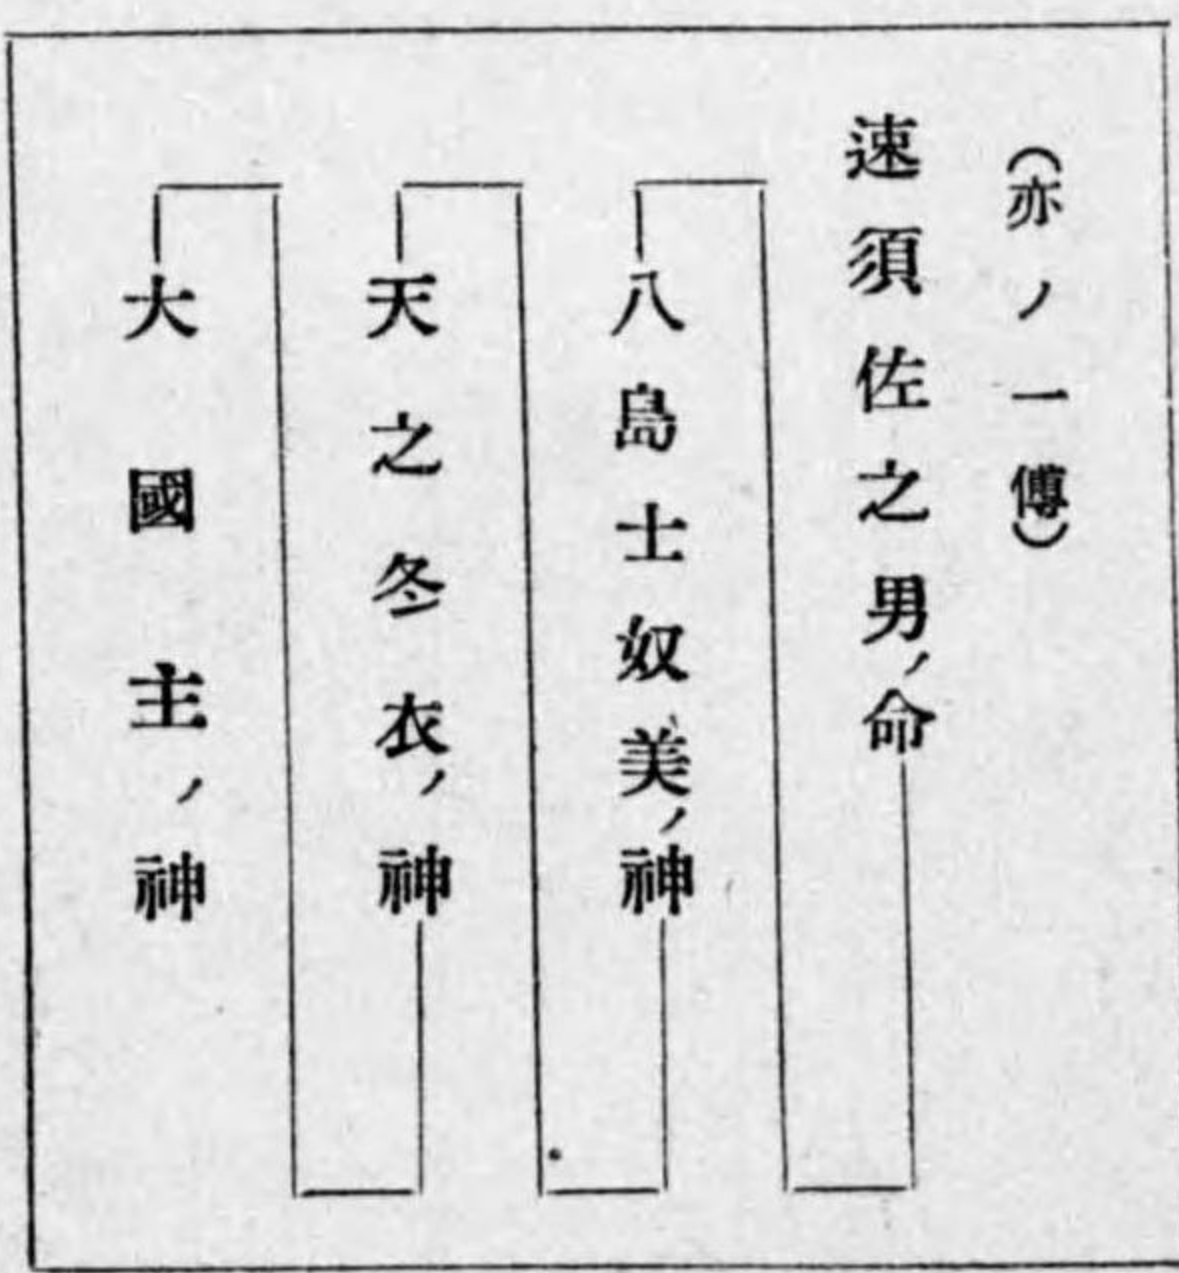 (亦ノ一傳)
速須佐之男ノ命
八島士奴美ノ神
天之冬衣ノ神
大國主ノ神